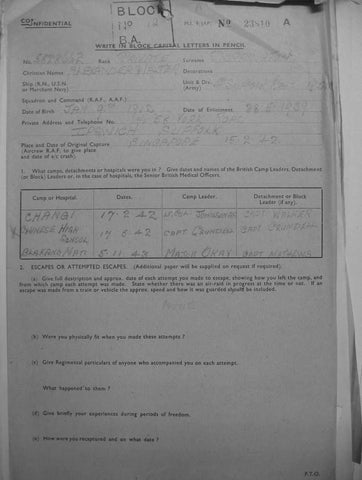 CONFIDENTIAL
BLOCK
No 12
B.A.
M.I. 9/JAP/ No 23810 A
WRITE IN BLOCK CAPITAL LETTERS IN PENCIL.
No. Rank PRIVATE Surname
Christian Names ALEXANDER Decorations
Ship (R.N., U.S.N. or Merchant Navy) Unit & Div. (Army)
Squadron and Command (R.A.F., A.A.F.)
Date of Birth JAN 9TH 1912 Date of Enlistment
Private Address and Telephone No.
IPSWICH SUFFOLK
Place and Date of Original Capture SINGAPORE 15-2-42
(Aircrew R.A.F. to give place and date of a/c crash).
1. What camps, detachments or hospitals were you in? Give dates and names of the British Camp Leaders, Detachment (or Block) Leaders or, in case of hospitals, the Senior British Medical Officers.
Camp or Hospital. Dates. Camp Leader. Detachment or Block Leader (if any).
CHANGI 17-2-42 CAPT WALKER
X CHINESE HIGH SCHOOL 42 CAPT GRUNDELL CAPT GRUNDELL
BLAKANG MATI 5-11-43 MAJOR CAPT
2. ESCAPES OR ATTEMPTED ESCAPES. (Additional paper will be supplied on request if required).
(a) Give full description and approx. date of each attempt you made to escape, showing how you left the camp, and from which camp each attempt was made. State whether there was an air-raid in progress at the time or not. If an escape was made from a train or vehicle the approx. speed and how it was guarded should be included.
(b) Were you physically fit when you made these attempts?
(c) Give Regimental particulars of anyone who accompanied you on each attempt.
What happened to them?
(d) Give briefly your experiences during periods of freedom.
(e) How were you recaptured and on what date?
P.T.O.